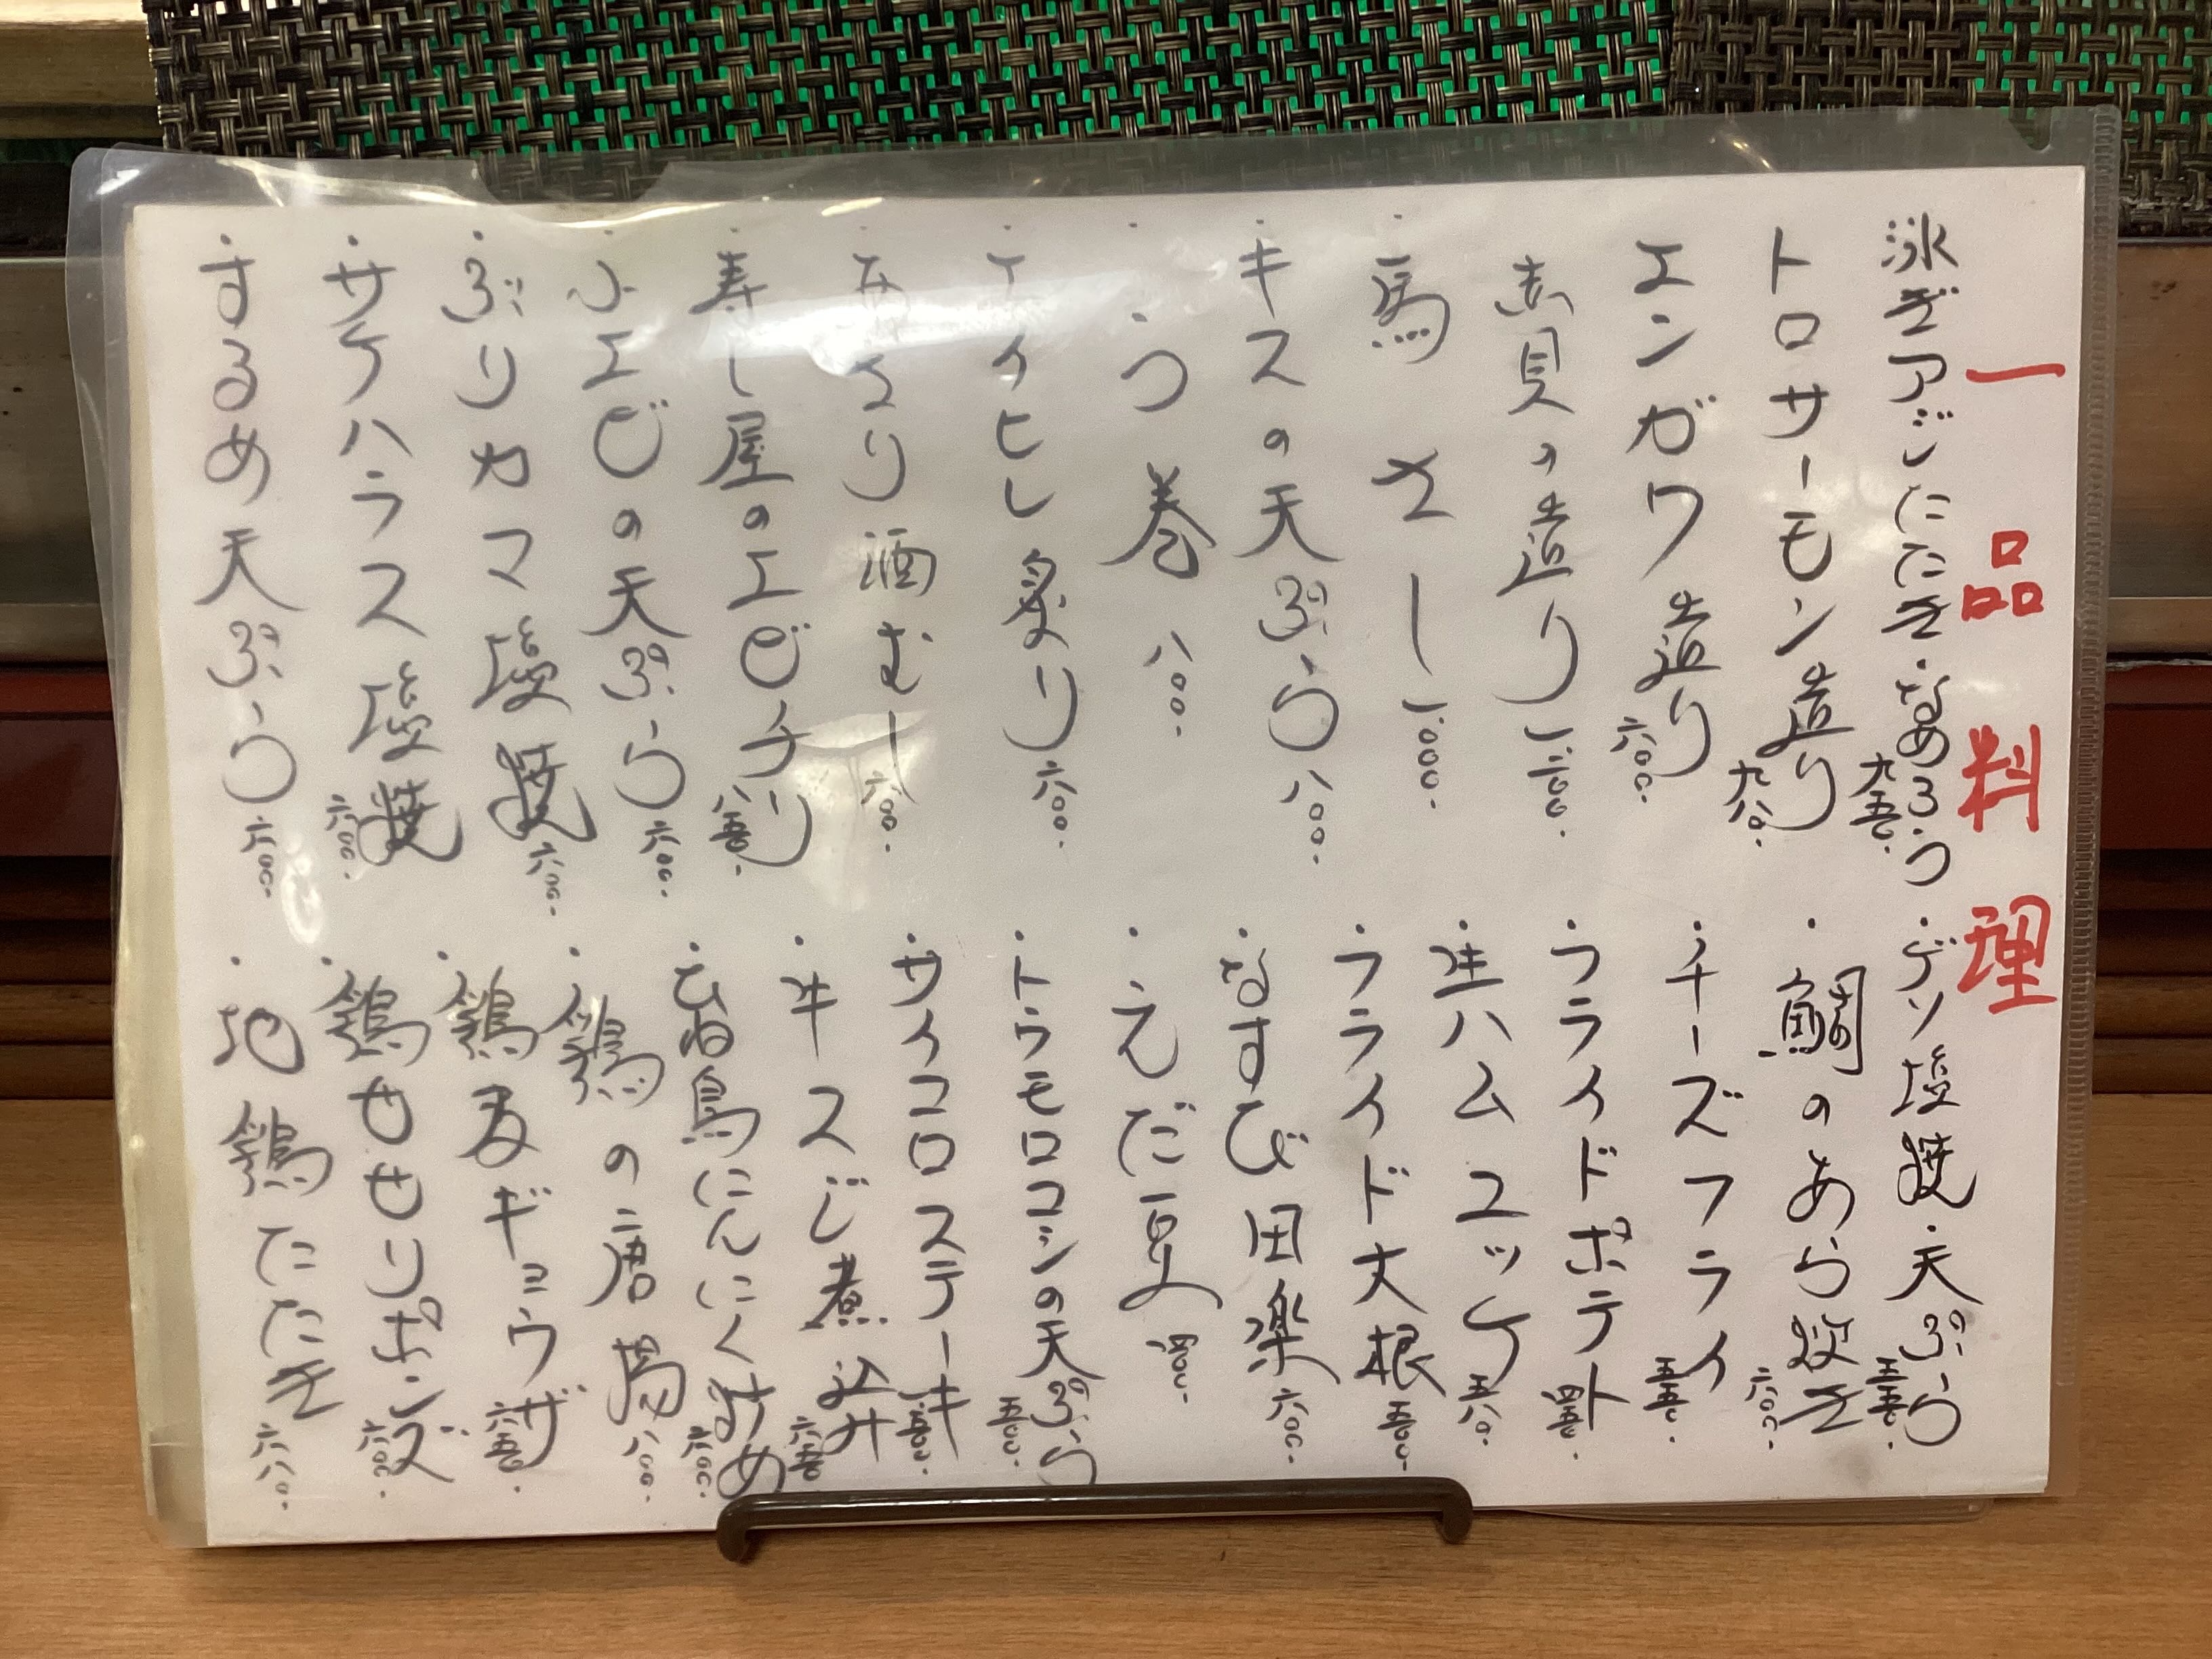 一品料理
泳ぎアジたたき・なめろう 九五〇.
トロサーモン造り 九八〇.
エンガワ造り 六八〇.
赤貝の造り 一、二〇〇.
・馬さし 一、〇〇〇.
・キスの天ぷら 八〇〇.
・う巻 八〇〇.
・エイヒレ炙り 六〇〇.
あさり酒むし 六〇〇.
・寿し屋のエビチリ 八五〇.
・小エビの天ぷら 六八〇.
・ぶりカマ塩焼 六八〇.
・サケハラス塩焼 六八〇.
・するめ天ぷら 六八〇.
・ゲソ塩焼・天ぷら 五五〇.
・鯛のあら炊き 六八〇.
・チーズフライ 五五〇.
・フライドポテト 四五〇.
・生ハムユッケ 五八〇.
・フライド大根 五五〇.
・なすび田楽 六八〇.
・えだ豆
・トウモロコシの天ぷら 五五〇.
・サイコロステーキ
・牛スジ煮込み 六五〇.
・ひね鳥にんにく炒め 六八〇.
・鶏の唐揚 八〇〇.
・鶏皮ギョウザ 六五〇.
・鶏せせりポン酢 六八〇.
・地鶏たたき 六八〇.